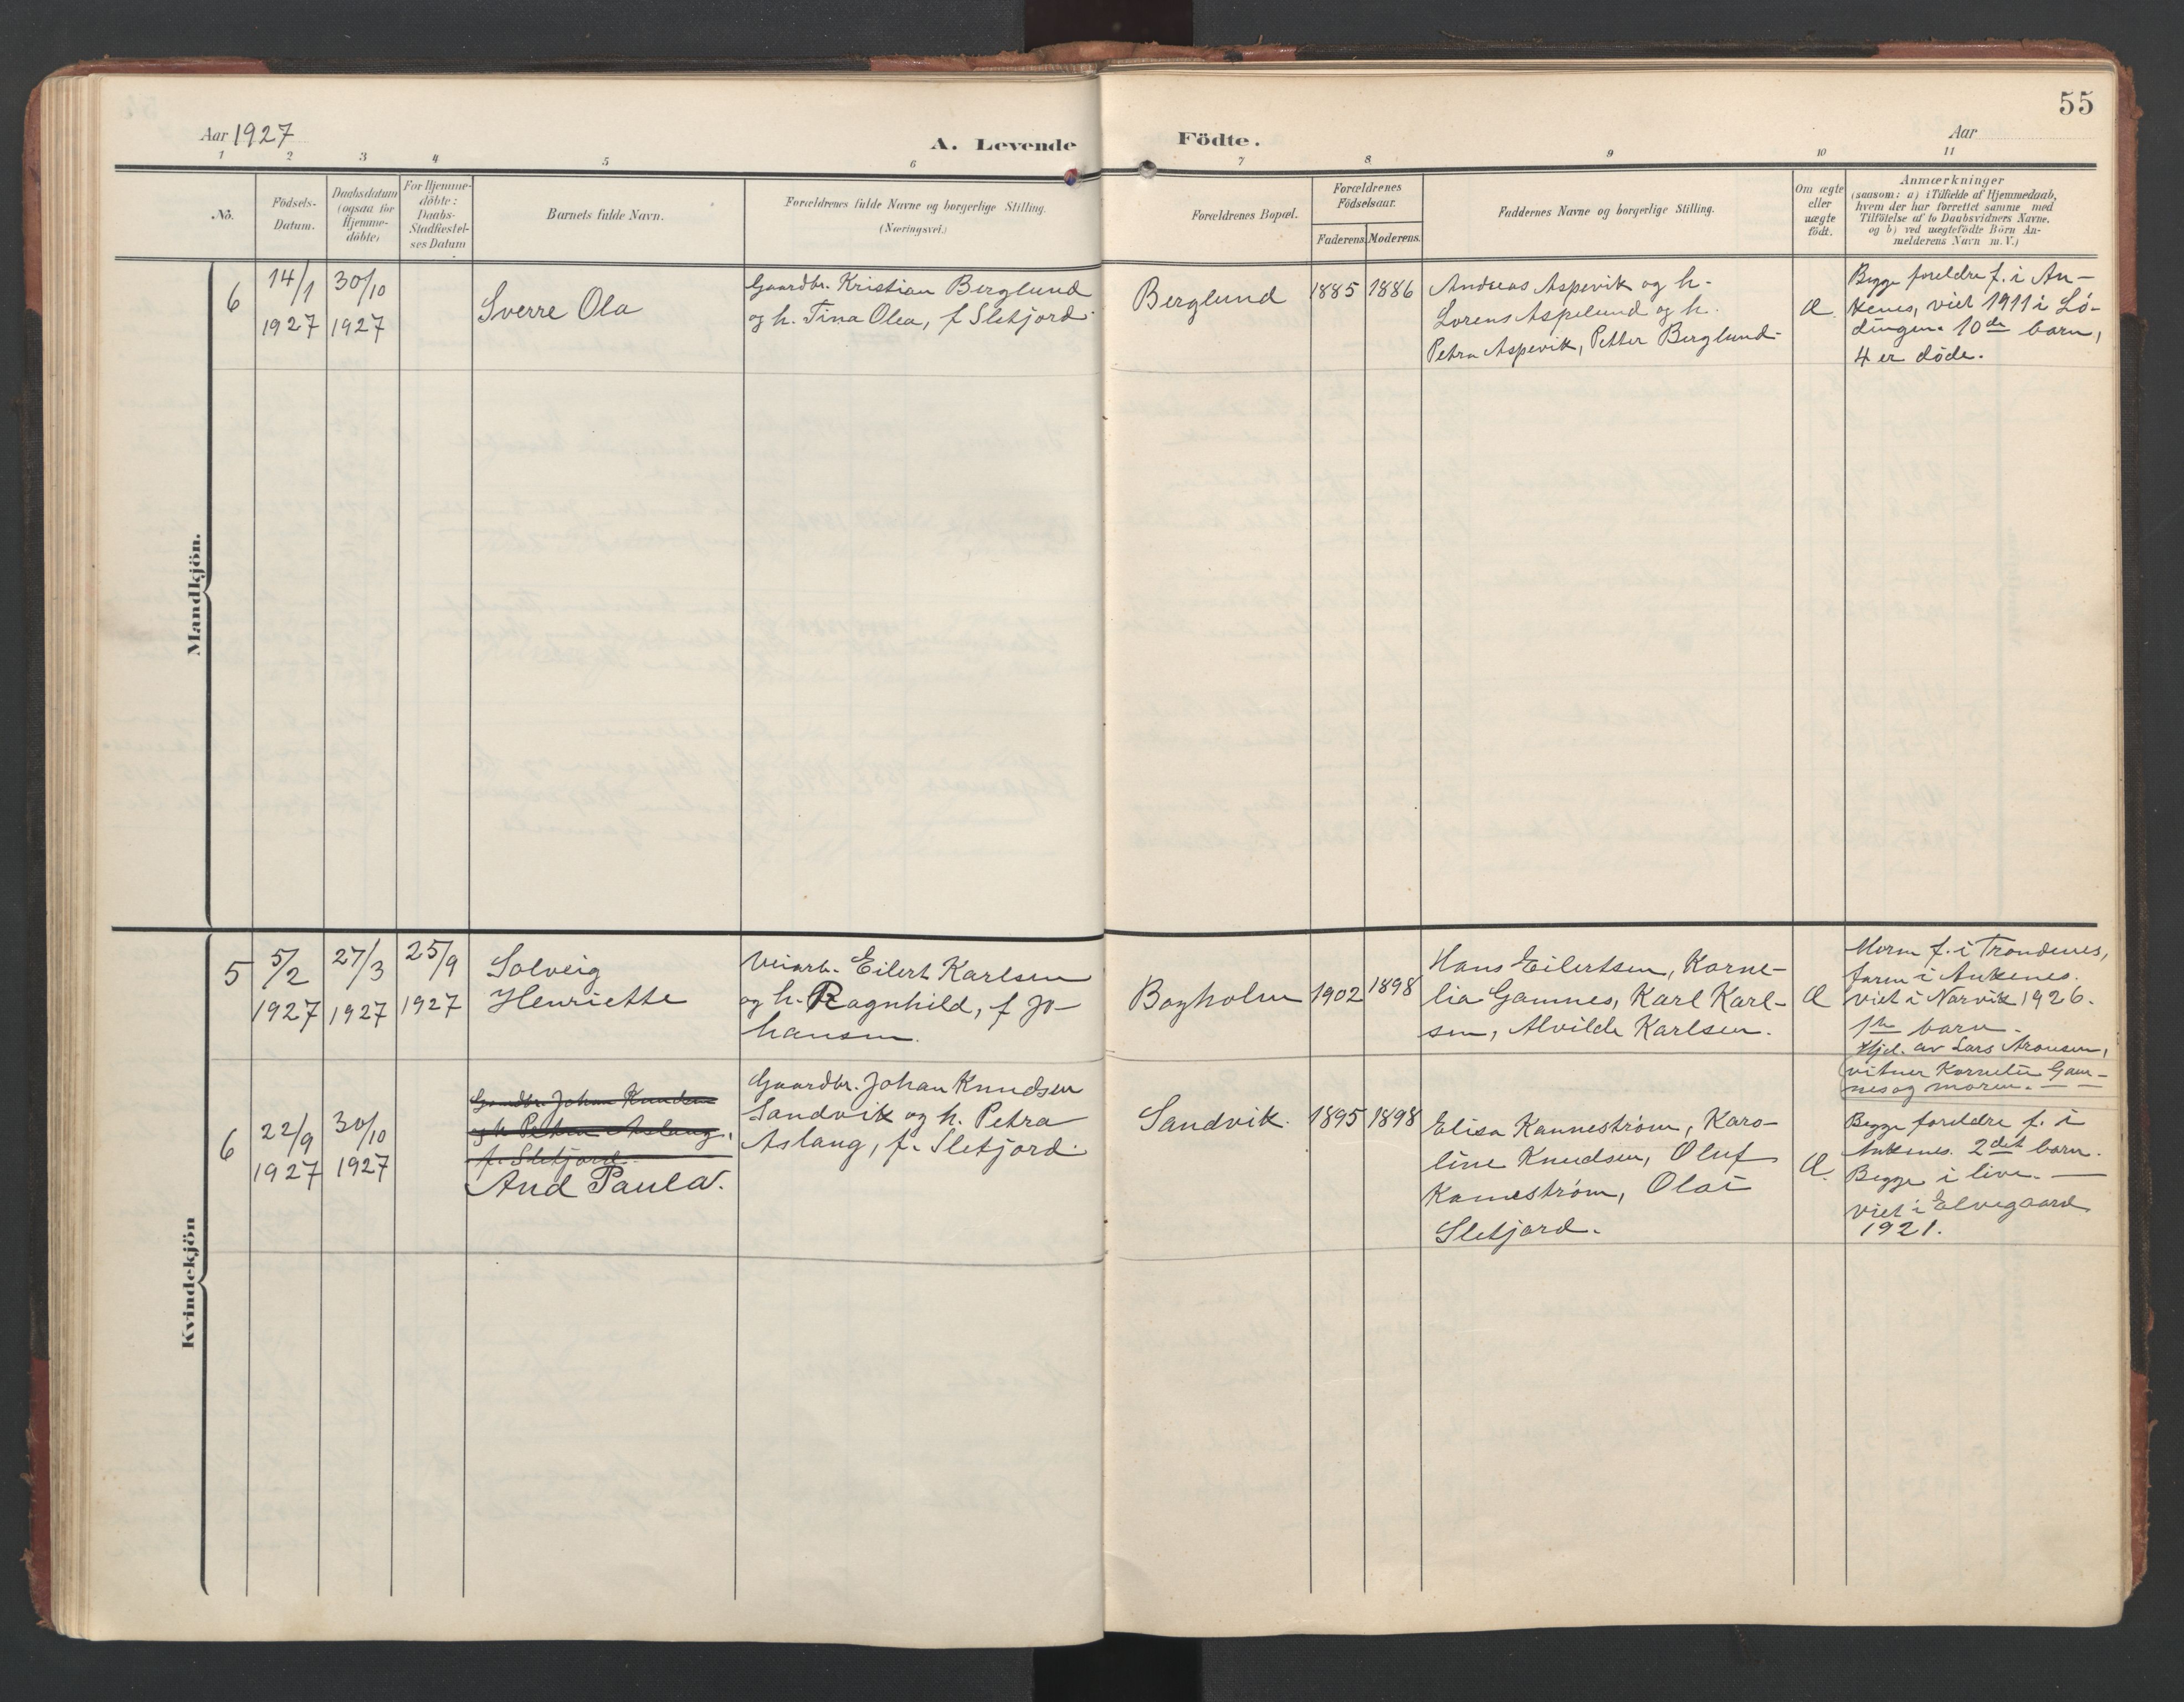 55
Aar 1927
A. Levende Födte.
Aar
1 2 3 4 5 6 7 8 9 10 11
No.
Födsels-
Datum.
Daabsdatum
(ogsaa for
Hjemme-
döbte)
For Hjemme-
döbte:
Daabs-
Stadfæstel-
ses Datum
Barnets fulde Navn.
Forældrenes fulde Navne og borgerlige Stilling.
(Næringsvei.)
Forældrenes Bopæl.
Forældrenes
Födselsaar.
Faderens. Moderens.
Faddernes Navne og borgerlige Stilling.
Om ægte
eller
uægte
födt.
Anmærkninger
(saasom: a) i Tilfælde af Hjemmedaab,
hvem der har forrettet samme med
Tilföielse af to Daabsvidners Navne,
og b) ved uægtefödte Börn An-
melderens Navn m. V.)
Mandkjön.
6
14/1
1927
30/10
1927
Sverre Ola
Gaardbr. Kristian Berglund
og h. Tina Olea, f Sletjord.
Berglund
1885
1886
Andreas Aspevik og h.
Lorens Aspelund og h.
Petra Aspevik, Petter Berglund.
Æ.
Begge foreldre f. i An-
kenes, viet 1911 i Lö-
dingen. 10de barn,
4 er döde.
Kvindekjön
5
5/2
1927
27/3
1927
25/9
1927
Solveig
Henriette
Veiarb. Eilert Karlsen
og h. Ragnhild, f Jo-
hansen.
Bogholm
1902
1898
Hans Eilertsen, Korne-
lia Gamnes, Karl Karl-
sen, Alvilde Karlsen.
Æ
Morn f. i Trondenes,
farn i Ankenes.
viet i Narvik 1926.
1ste barn.
Hjd. av Lars Aronsen,
vitner Kornelia Gam-
nes og moren.
6
22/9
1927
30/10
1927
Gaardbr. Johan Knudsen
og h. Petra Aslaug,
f. Sletjord.
Aud Paula.
Gaardbr. Johan Knudsen
Sandvik og h. Petra
Aslaug, f. Sletjord.
Sandvik.
1895
1898
Elisa Kanneström, Karo-
line Knudsen, Oluf
Kanneström, Olai
Sletjord.
Æ.
Begge foreldre f. i
Ankenes. 2det barn.
Begge i live.
viet i Elvegaard
1921.